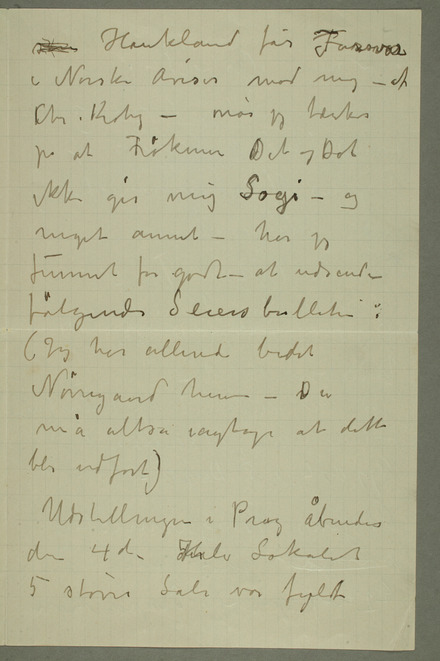 Haukland får Forsvar
i Norske Aviser mod mig – af
Chr. Krohg – når jeg tænker
på at Frökener Det og Det
ikke gir mig Sogi – og
meget annet – har jeg
funnet for godt – at udsende
fölgende Seiersbulletin:
(Jeg har allerede bedet
Nörregaard herom – Du
må altså iagtage at dette
blir udfört)
Udstillingen i Prag åbnedes
den 4de Hele Lokalet
5 større Sale var fyldt